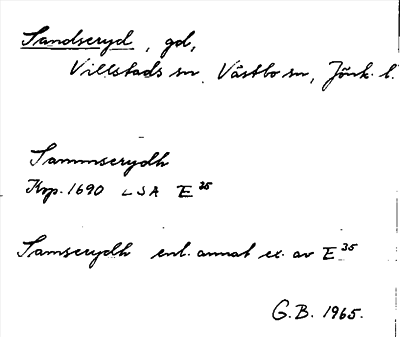 Sandseryd, gd,
Villstads sn, Västbo sn, Jönk. l.
Sammserydh
Kop. 1690 LSA E 35
Samserydh enl. annat ex. av E 35
G.B. 1965.